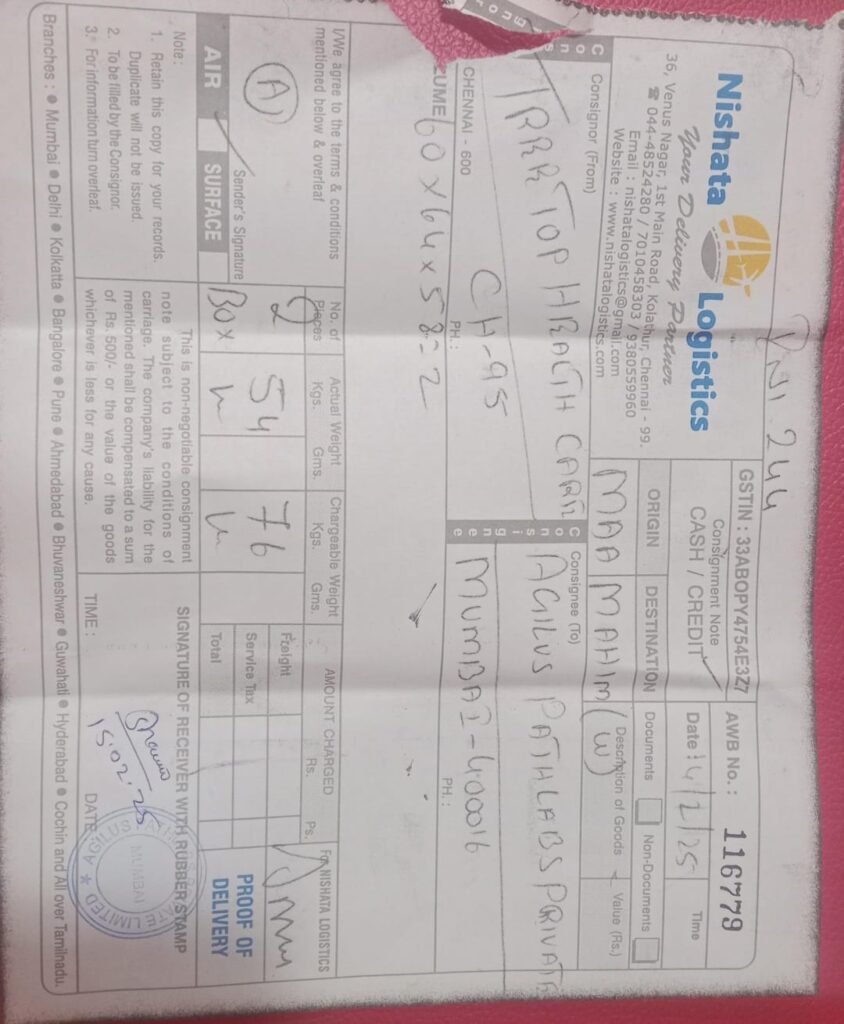 Nishata Logistics
Your Delivery Partner
36, Venus Nagar, 1st Main Road, Kolathur, Chennai - 99.
☎ 044-48524280 / 7010458303 / 9380559960
Email : nishatalogistics@gmail.com
Website : www.nishatalogistics.com
244
GSTIN : 33ABOPY4754E3Z7
Consignment Note
CASH / CREDIT
AWB No. : 116779
Date 14/2/25
Time
ORIGIN
DESTINATION
MAA MAHIM (W)
Documents
Non-Documents
Description of Goods
Value (Rs.)
Consignor (From)
TOP HEALTH CARE
CH-95
CHENNAI - 600
PH.:
Consignee
Consignee (To)
AGILUS PATHLABS PRIVATE
MUMBAI-400016
PH.:
60 x 64 x 58 = 2
I/We agree to the terms & conditions
mentioned below & overleaf
Sender's Signature
AIR
SURFACE
No. of Pieces
2
Box
Actual Weight
Kgs. Gms.
54
Chargeable Weight
Kgs. Gms.
76
AMOUNT CHARGED
Rs. Ps.
Freight
Service Tax
Total
For NISHATA LOGISTICS
PROOF OF
DELIVERY
Note :
1. Retain this copy for your records.
Duplicate will not be issued.
2. To be filled by the Consignor.
3. For information turn overleaf.
This is non-negotiable consignment
note subject to the conditions of
carriage. The company's liability for the
mentioned shall be compensated to a sum
of Rs. 500/- or the value of the goods
whichever is less for any cause.
SIGNATURE OF RECEIVER WITH RUBBER STAMP
15.02.25
TIME :
DATE
AGILUS LIMITED
MUMBAI
Branches : ● Mumbai ● Delhi ● Kolkatta ● Bangalore ● Pune ● Ahmedabad ● Bhuvaneshwar ● Guwahati ● Hyderabad ● Cochin and All over Tamilnadu.